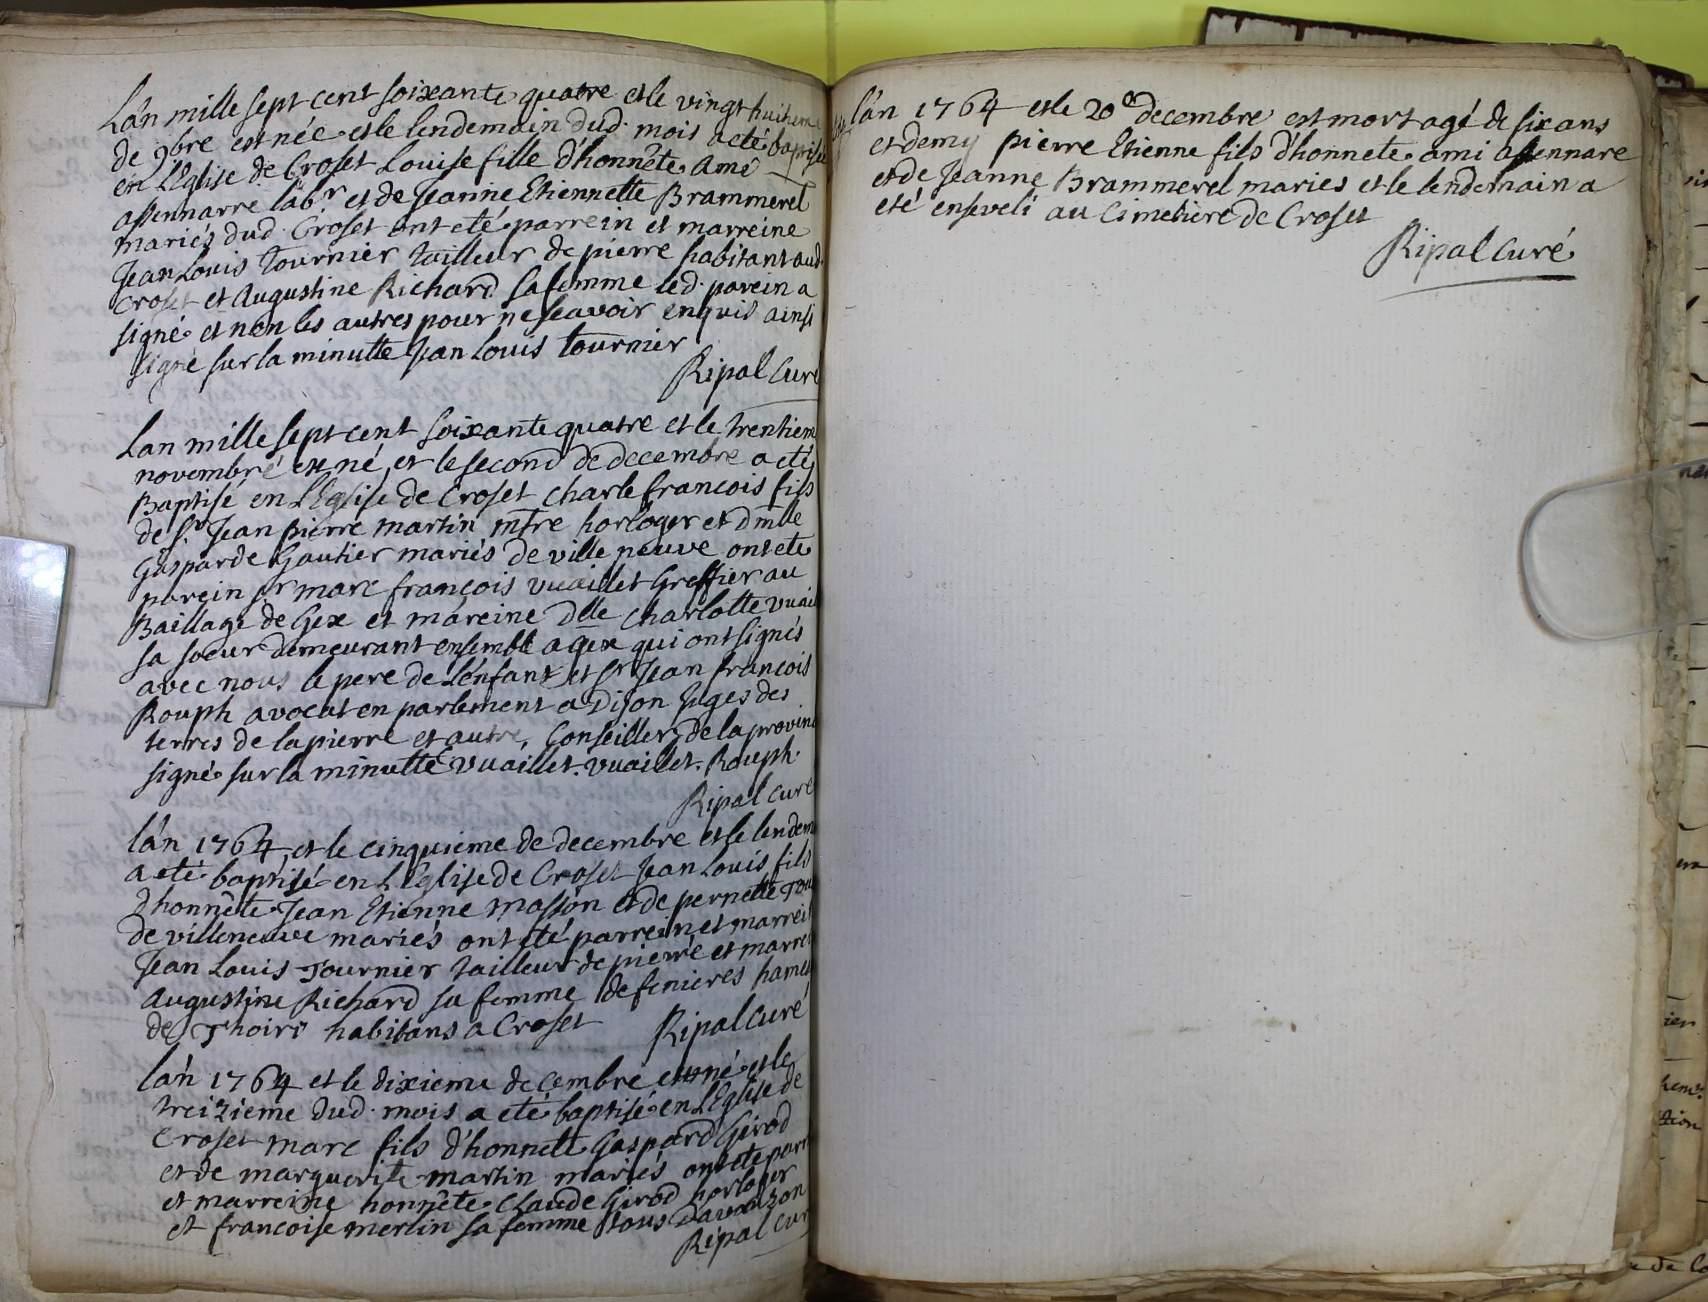 Lan mille sept cent soixante quatre et le vingt huitieme
de 9bre est née et le lendemain dud. mois a eté baptisée
en l'Eglise de Croset Louise fille d'honnête Amé
assennarre labr et de Jeanne Etiennette Brammerel
mariés dud. Croset ont eté parrein et marreine
Jean Louis Tournier tailleur de pierre habitant aud.
Croset et Augustine Richard sa femme led. parein a
signé et non les autres pour ne scavoir enquis ainsi
signé sur la minutte Jean Louis tournier
Ripal Curé
Lan mille sept cent soixante quatre et le trentiem
novembre est né, et le second de decembre a eté
Baptisé en L'Eglise de Croset charle francois fils
de Sr Jean pierre martin mtre horloger et dmlle
Gasparde Gautier mariés de ville neuve ont eté
parein Sr marc françois vuaillet Greffier au
Baillage de Gex et mareine Dlle Charlotte vuail
sa soeur demeurant ensemble a gex qui ont signés
avec nous le pere de l'enfant et Sr Jean francois
Rouph avocat en parlement a Dijon juges des
terres de la pierre et autre, Conseiller de la provin
signé sur la minutte vuaillet. vuaillet. Rouph.
Ripal curé
lán 1764 et le cinquieme de decembre et le lendem
a eté baptisé en L'Eglise de Croset Jean Louis fils
d'honnête Jean Etienne masson et de pernette Tou
de villeneuve mariés ont eté parrein et marrein
Jean Louis Tournier tailleur de pierre et marre
augustine Richard sa femme de fenieres hame
de Thoiri habitans a Croset
Ripal curé
lán 1764 et le dixieme decembre est né et le
treizieme dud. mois a eté baptisé en L'Eglise de
Croset marc fils d'honnete Gaspard Girod
et de marguerite martin mariés ont eté parr
et marreine honnête Claude Girod horloger
et francoise merlin sa femme tous d'avouzon
Ripal Cur
lán 1764 et le 20e decembre est mort agé de six ans
et demy pierre Etienne fils d'honnete ami assennare
et de Jeanne Brammerel maries et le lendemain a
eté enseveli au Cimetiere de Croset
Ripal Curé